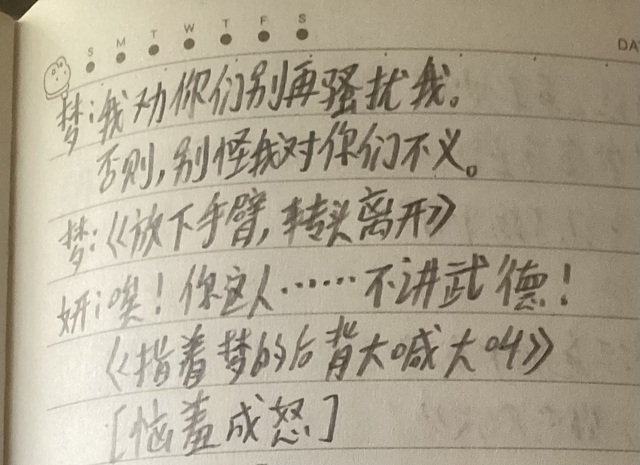 S M T W T F S
DA
梦:我劝你们别再骚扰我。
否则,别怪我对你们不义。
梦:《放下手臂,转头离开》
妍:唉!你这人……不讲武德!
《指着梦的后背大喊大叫》
[恼羞成怒]